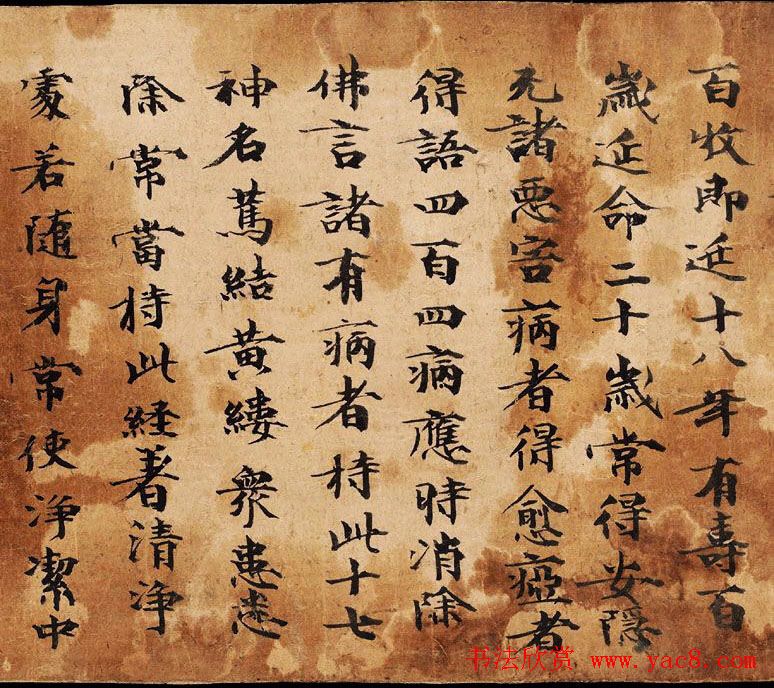 百收即延十八年有壽百
歲延命二十歲常得安隱
无諸惡害病者得愈瘂者
得語四百四病應時消除
佛言諸有病者持此十七
神名為結黃縷眾患悉
除常當持此经著清淨
處若隨身常使淨潔中
书法欣赏 www.yac8.com